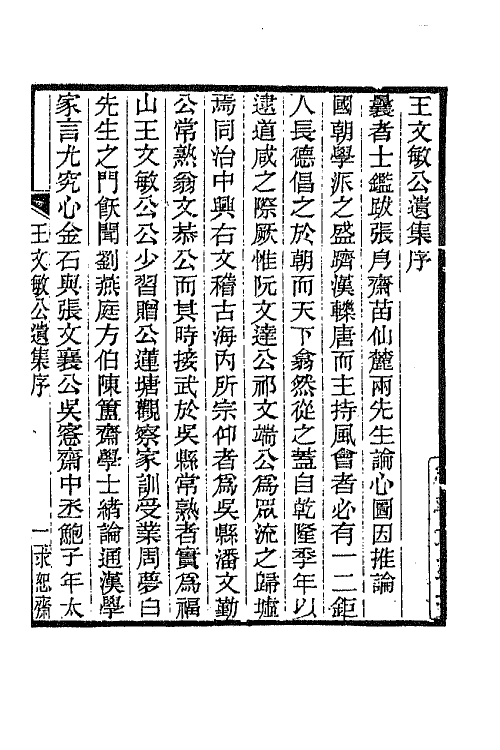 王文敏公遺集序
曩者士鑑跋張㒷齋苗仙麓兩先生論心圖因推論
國朝學派之盛躋漢轢唐而主持風會者必有一二鉅
人長德倡之於朝而天下翕然從之蓋自乾隆季年以
逮道咸之際厥惟阮文達公祁文端公爲眾流之歸墟
焉同治中興右文稽古海內所宗仰者爲吳縣潘文勤
公常熟翁文恭公而其時接武於吳縣常熟者實爲福
山王文敏公公少習贈公蓮塘觀察家訓受業周夢白
先生之門飫聞劉燕庭方伯陳簠齋學士緒論通漢學
家言尤究心金石與張文襄公吳愙齋中丞鮑子年太
王文敏公遺集序
一
求恕齋